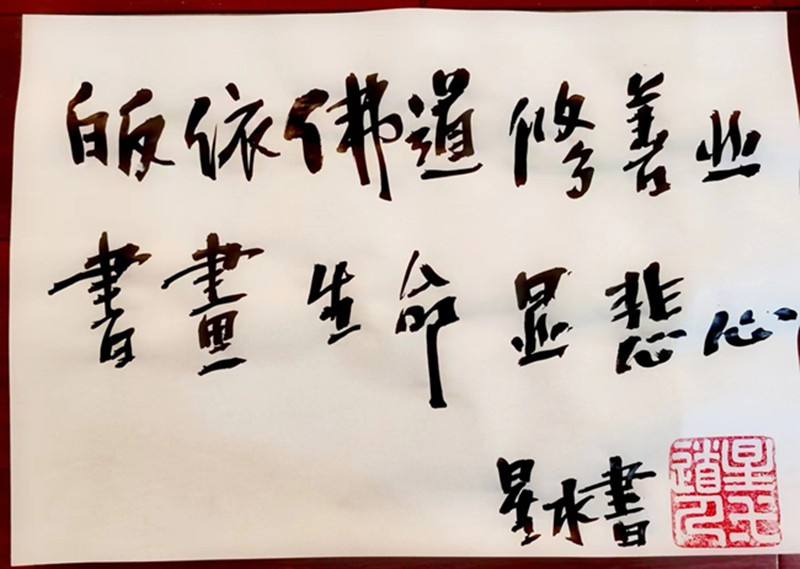 皈依佛道修善业
書畫生命显悲心
星水書